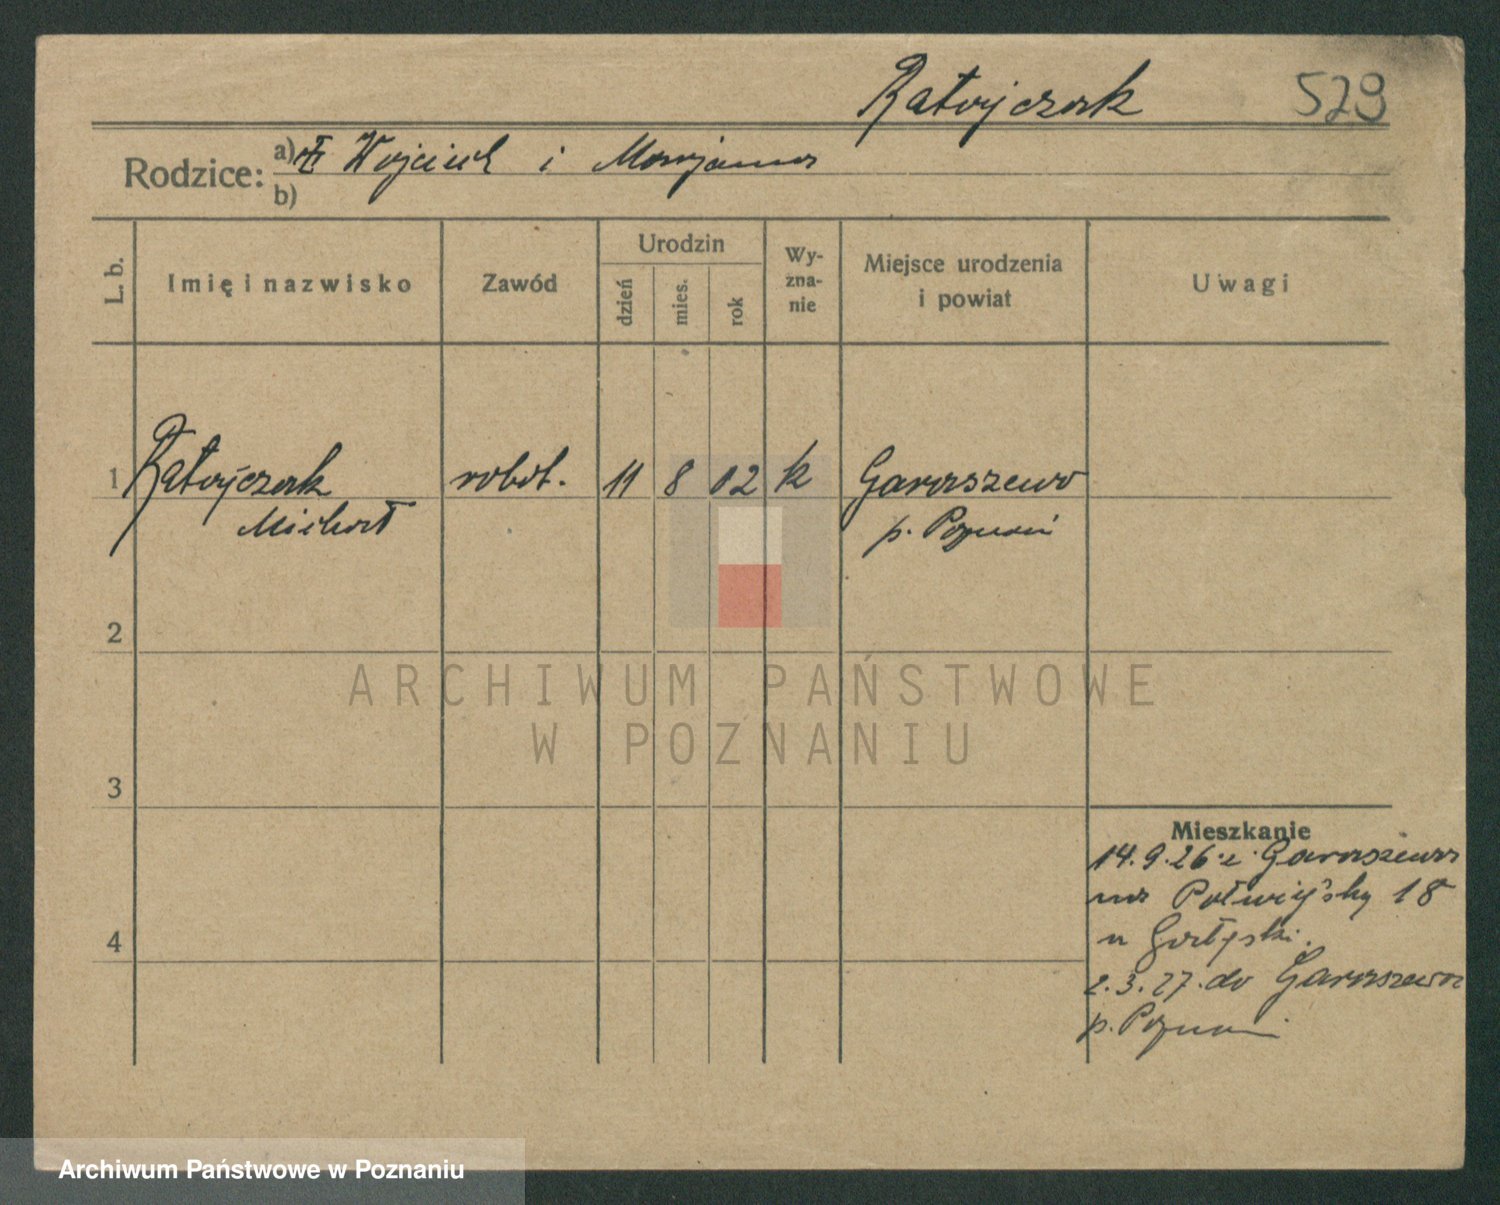 Ratajczak 529
Rodzice: a) Wojciech i Marjanna
b)
L. b. Imię i nazwisko Zawód Urodzin dzień mies. rok Wy-zna-nie Miejsce urodzenia i powiat Uwagi
1 Ratajczak robot. 11 8 02 k Garaszewo
Michał p. Poznań
2
ARCHIWUM PAŃSTWOWE
W POZNANIU
3
Mieszkanie
14.9.26 z Garaszewa
na 18
4
u
2.3.27. do Garaszewa
p. Poznań
Archiwum Państwowe w Poznaniu